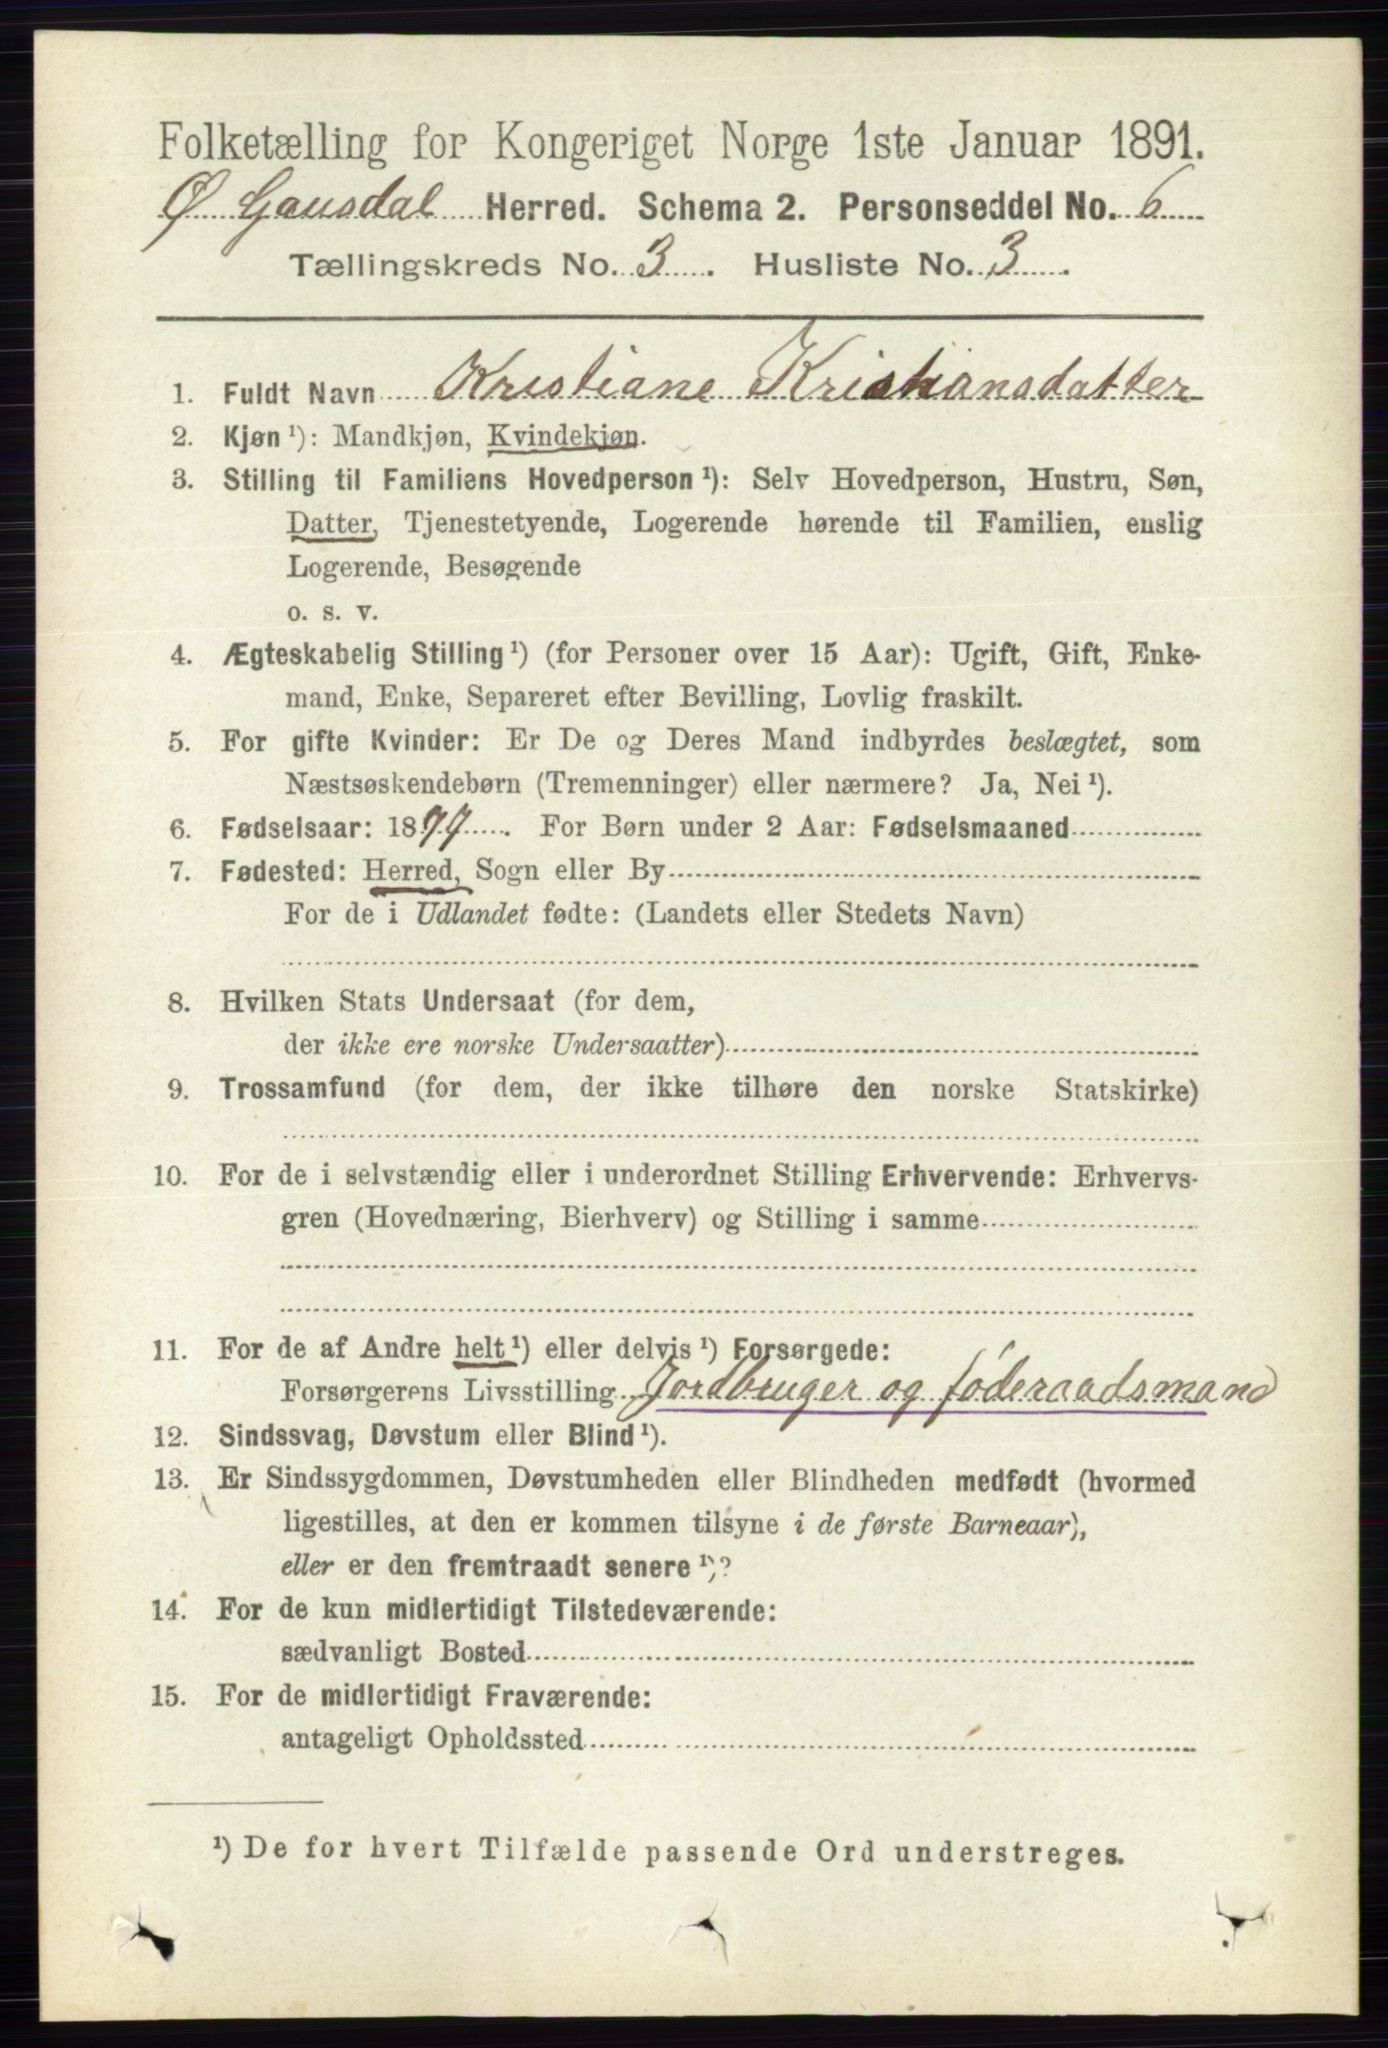 Folketælling for Kongeriget Norge 1ste Januar 1891.
Ø. Gausdal Herred. Schema 2. Personseddel No. 6
Tællingskreds No. 3. Husliste No. 3.
1. Fuldt Navn Kristiane Kristiansdatter
2. Kjøn ¹): Mandkjøn, Kvindekjøn.
3. Stilling til Familiens Hovedperson ¹): Selv Hovedperson, Hustru, Søn,
Datter, Tjenestetyende, Logerende hørende til Familien, enslig
Logerende, Besøgende
o. s. v.
4. Ægteskabelig Stilling ¹) (for Personer over 15 Aar): Ugift, Gift, Enke-
mand, Enke, Separeret efter Bevilling, Lovlig fraskilt.
5. For gifte Kvinder: Er De og Deres Mand indbyrdes beslægtet, som
Næstsøskendebørn (Tremenninger) eller nærmere? Ja, Nei ¹).
6. Fødselsaar: 1877. For Børn under 2 Aar: Fødselsmaaned
7. Fødested: Herred, Sogn eller By
For de i Udlandet fødte: (Landets eller Stedets Navn)
8. Hvilken Stats Undersaat (for dem,
der ikke ere norske Undersaatter)
9. Trossamfund (for dem, der ikke tilhøre den norske Statskirke)
10. For de i selvstændig eller i underordnet Stilling Erhvervende: Erhvervs-
gren (Hovednæring, Bierhverv) og Stilling i samme
11. For de af Andre helt ¹) eller delvis ¹) Forsørgede:
Forsørgerens Livsstilling Jordbruger og føderaadsmand
12. Sindssvag, Døvstum eller Blind ¹).
13. Er Sindssygdommen, Døvstumheden eller Blindheden medfødt (hvormed
ligestilles, at den er kommen tilsyne i de første Barneaar),
eller er den fremtraadt senere ¹)?
14. For de kun midlertidigt Tilstedeværende:
sædvanligt Bosted
15. For de midlertidigt Fraværende:
antageligt Opholdssted
¹) De for hvert Tilfælde passende Ord understreges.